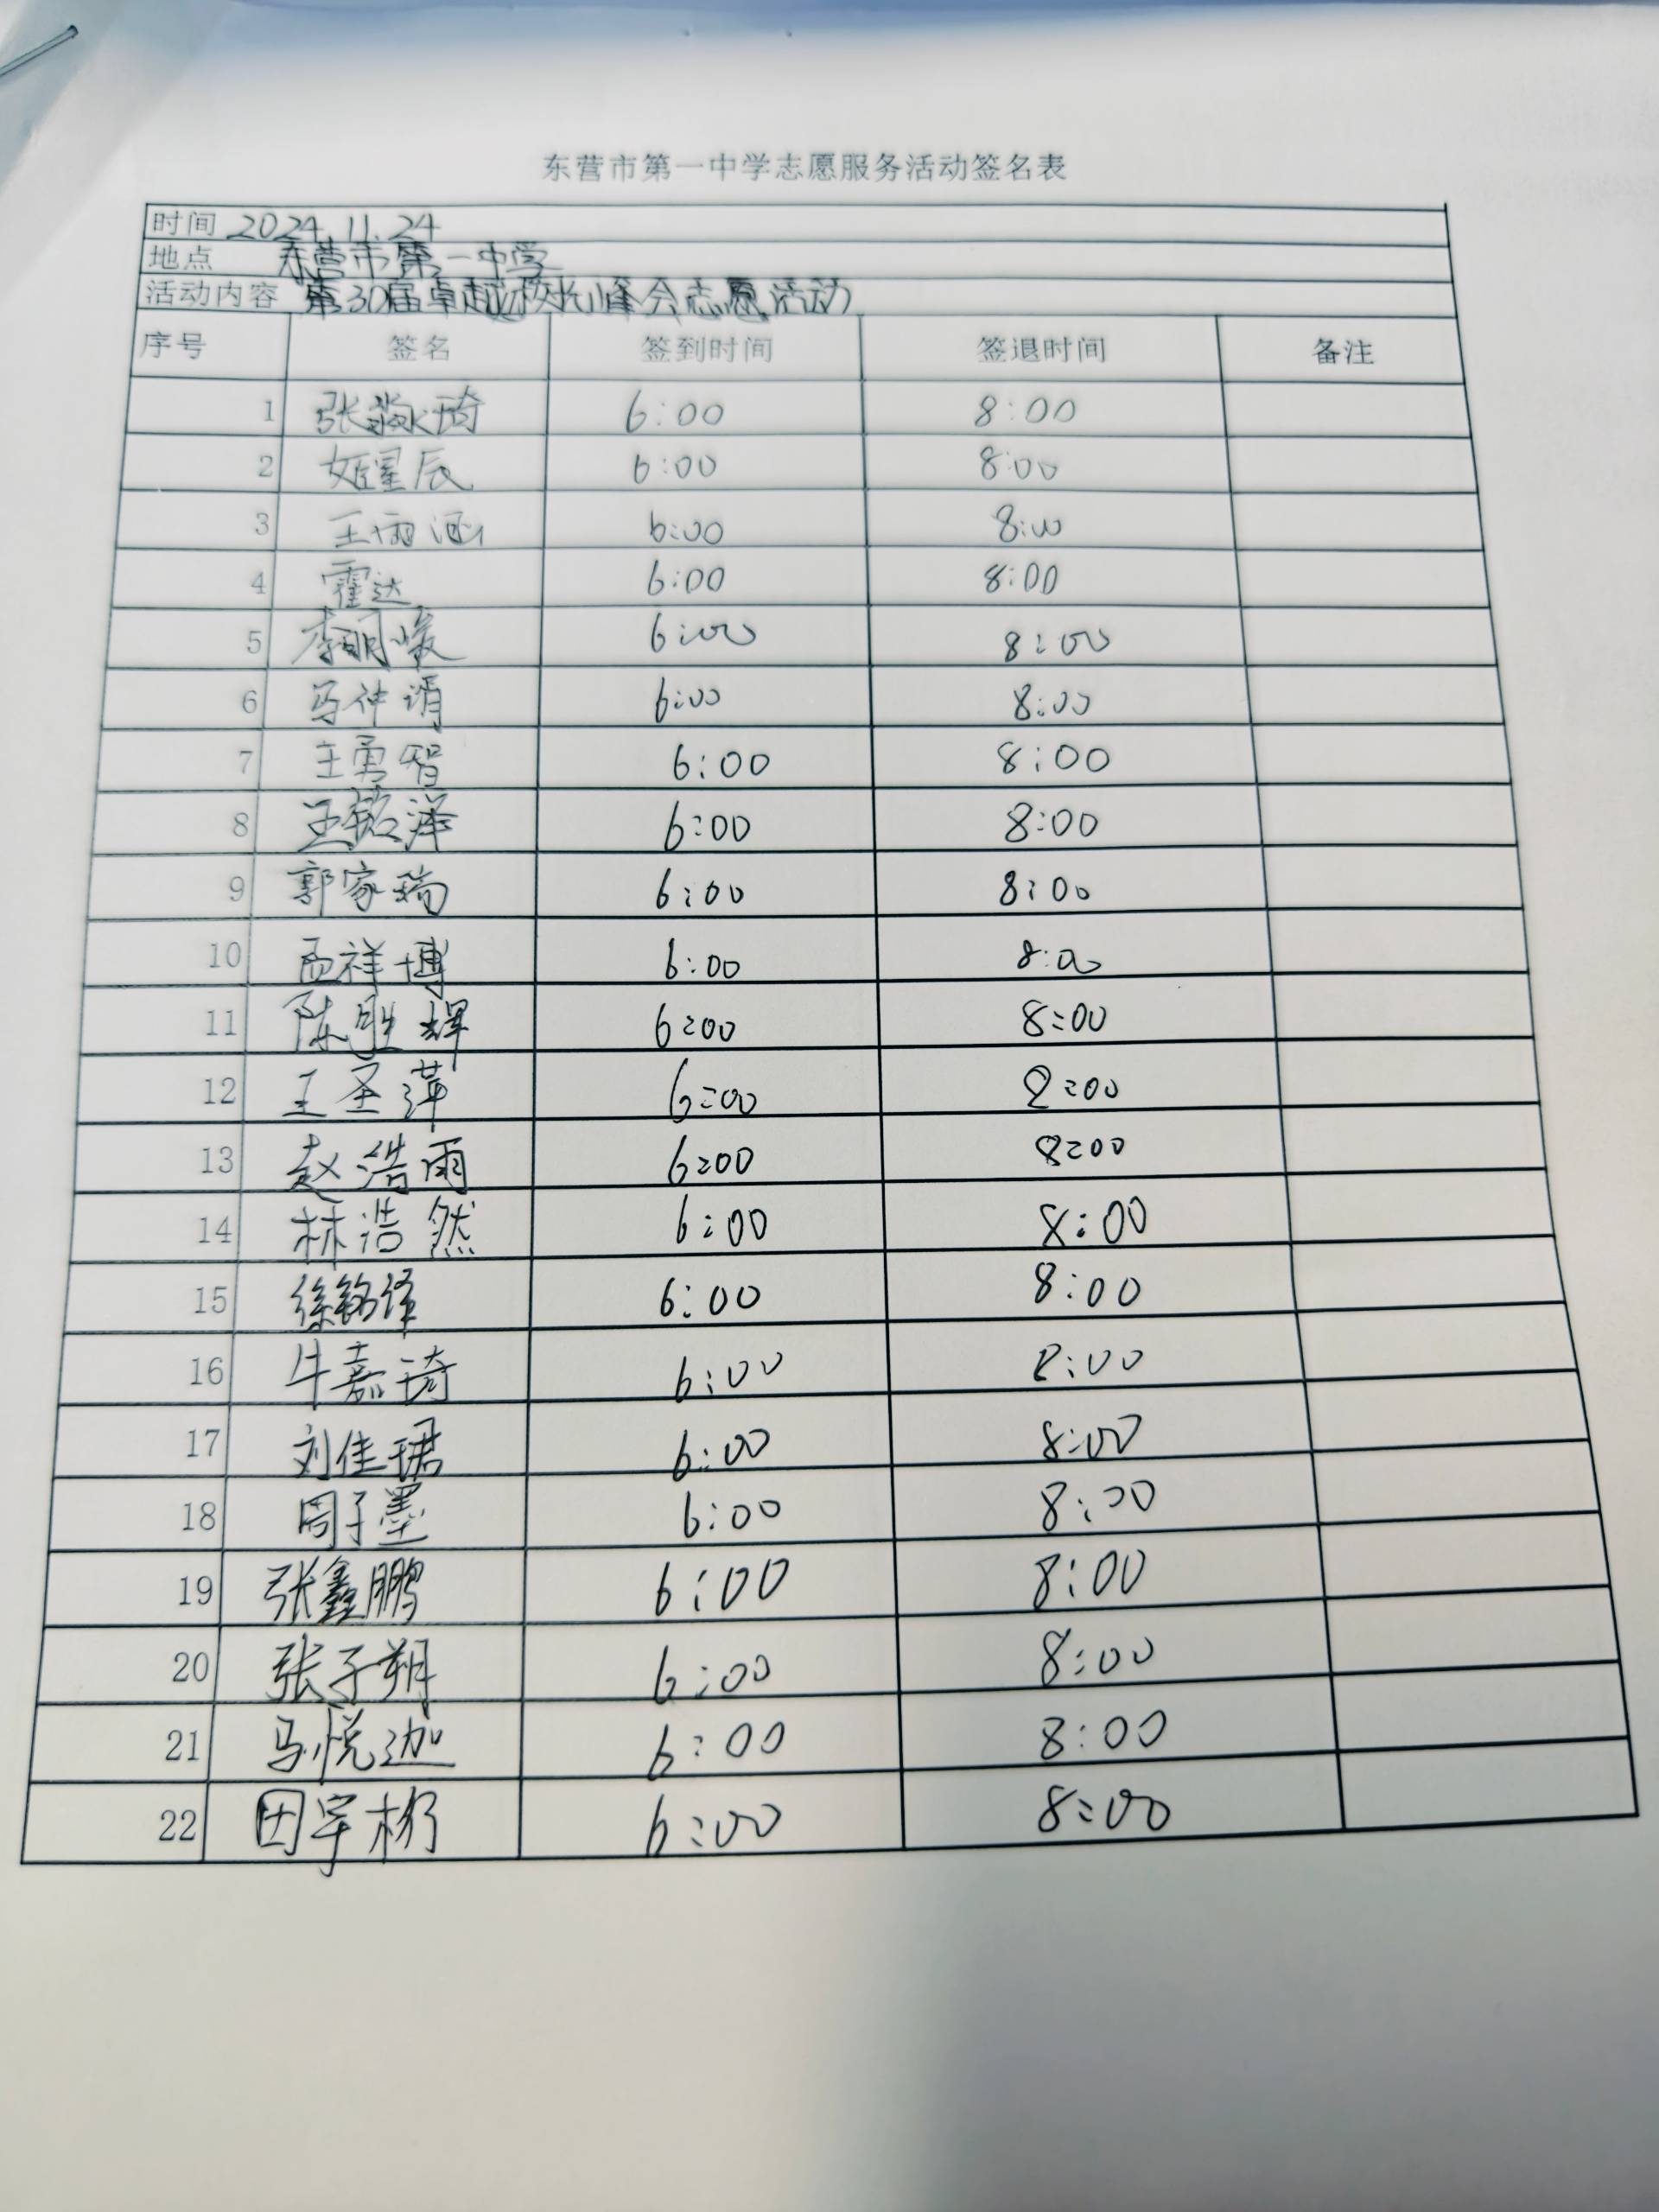 东营市第一中学志愿服务活动签名表
时间 2024.11.24
地点 东营市第一中学
活动内容 第30届卓越校长峰会志愿活动
序号 签名 签到时间 签退时间 备注
1 张淼琦 6:00 8:00
2 姬星辰 6:00 8:00
3 王雨涵 6:00 8:00
4 霍达 6:00 8:00
5 李明媛 6:00 8:00
6 马仲谞 6:00 8:00
7 王勇智 6:00 8:00
8 王铭泽 6:00 8:00
9 郭家瑞 6:00 8:00
10 孟祥博 6:00 8:00
11 陈胜辉 6:00 8:00
12 王圣萍 6:00 8:00
13 赵浩雨 6:00 8:00
14 林浩然 6:00 8:00
15 徐铭泽 6:00 8:00
16 牛嘉琦 6:00 8:00
17 刘佳珺 6:00 8:00
18 周子墨 6:00 8:00
19 张鑫鹏 6:00 8:00
20 张子朔 6:00 8:00
21 马悦迦 6:00 8:00
22 田宇 6:00 8:00